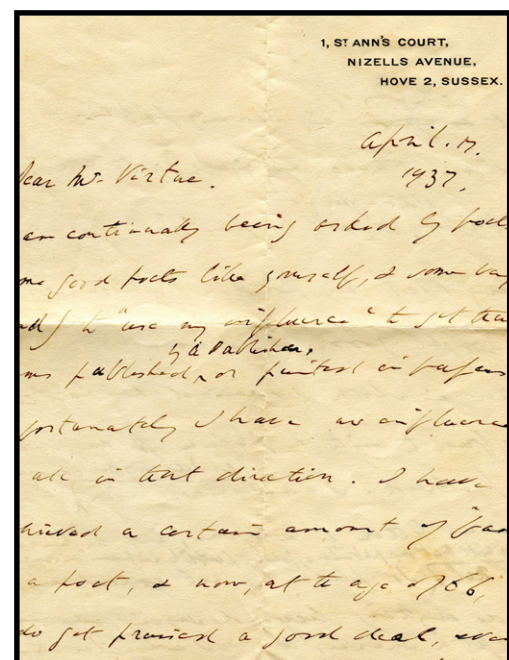 1, ST ANN'S COURT,
NIZELLS AVENUE,
HOVE 2, SUSSEX.
April. 17.
1937.
Dear Mr. Virtue.
am continually being asked by poets
me good poets like yourself, & some very
ad) to "use my influence" to get their
by a Publisher,
ms published, or printed in papers
fortunately I have no influence
at all in that direction. I have
hieved a certain amount of
a poet, & now, at the age of 66,
do get praised a good deal, even